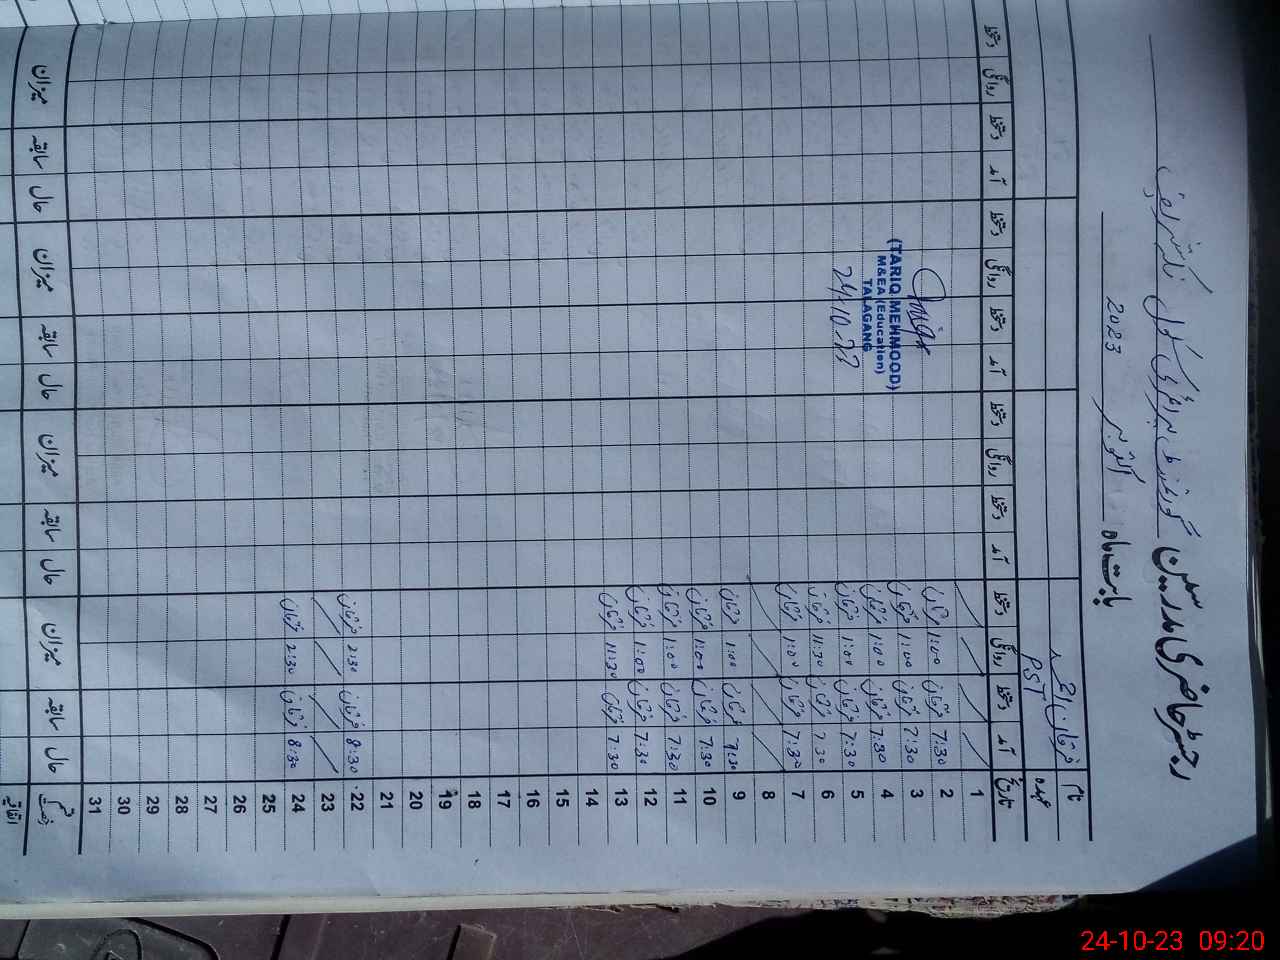 رجسٹر حاضری مدرسین سکول گورنمنٹ پرائمری سکول
بابت ماہ اکتوبر 2023
نام
عہدہ PST
تاریخ آمد دستخط روانگی دستخط آمد دستخط روانگی دستخط آمد دستخط روانگی دستخط آمد دستخط روانگی دستخط
1
2 7:30 فرقان 1:00 فرقان
3 7:30 فرقان 1:00 فرقان
4 7:30 فرقان 1:00 فرقان
5 7:30 فرقان 1:00 فرقان
6 7:30 فرقان 11:30 فرقان
7 7:30 فرقان 1:00 فرقان
8
9 7:30 فرقان 1:00 فرقان
10 7:30 فرقان 1:00 فرقان
11 7:30 فرقان 1:00 فرقان
12 7:30 فرقان 1:00 فرقان
13 7:30 فرقان 11:30 فرقان
14
15
16
17
18
19
20
21
22 8:30 فرقان 2:30 فرقان
23
24 8:30 فرقان 2:30 فرقان
25
26
27
28
29
30
31
حال سابقہ میزان حال سابقہ میزان حال سابقہ میزان حال سابقہ میزان
اتفاقیہ
(TARIQ MEHMOOD)
M&EA (Education)
TALAGANG
24-10-23
24-10-23 09:20